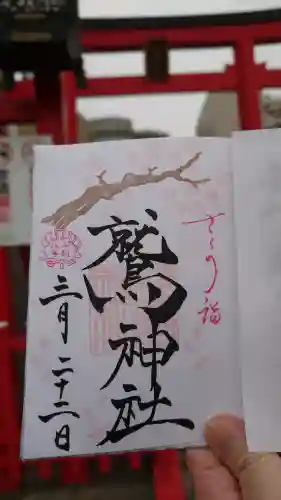 さくら詣
鷲神社
三月二十二日